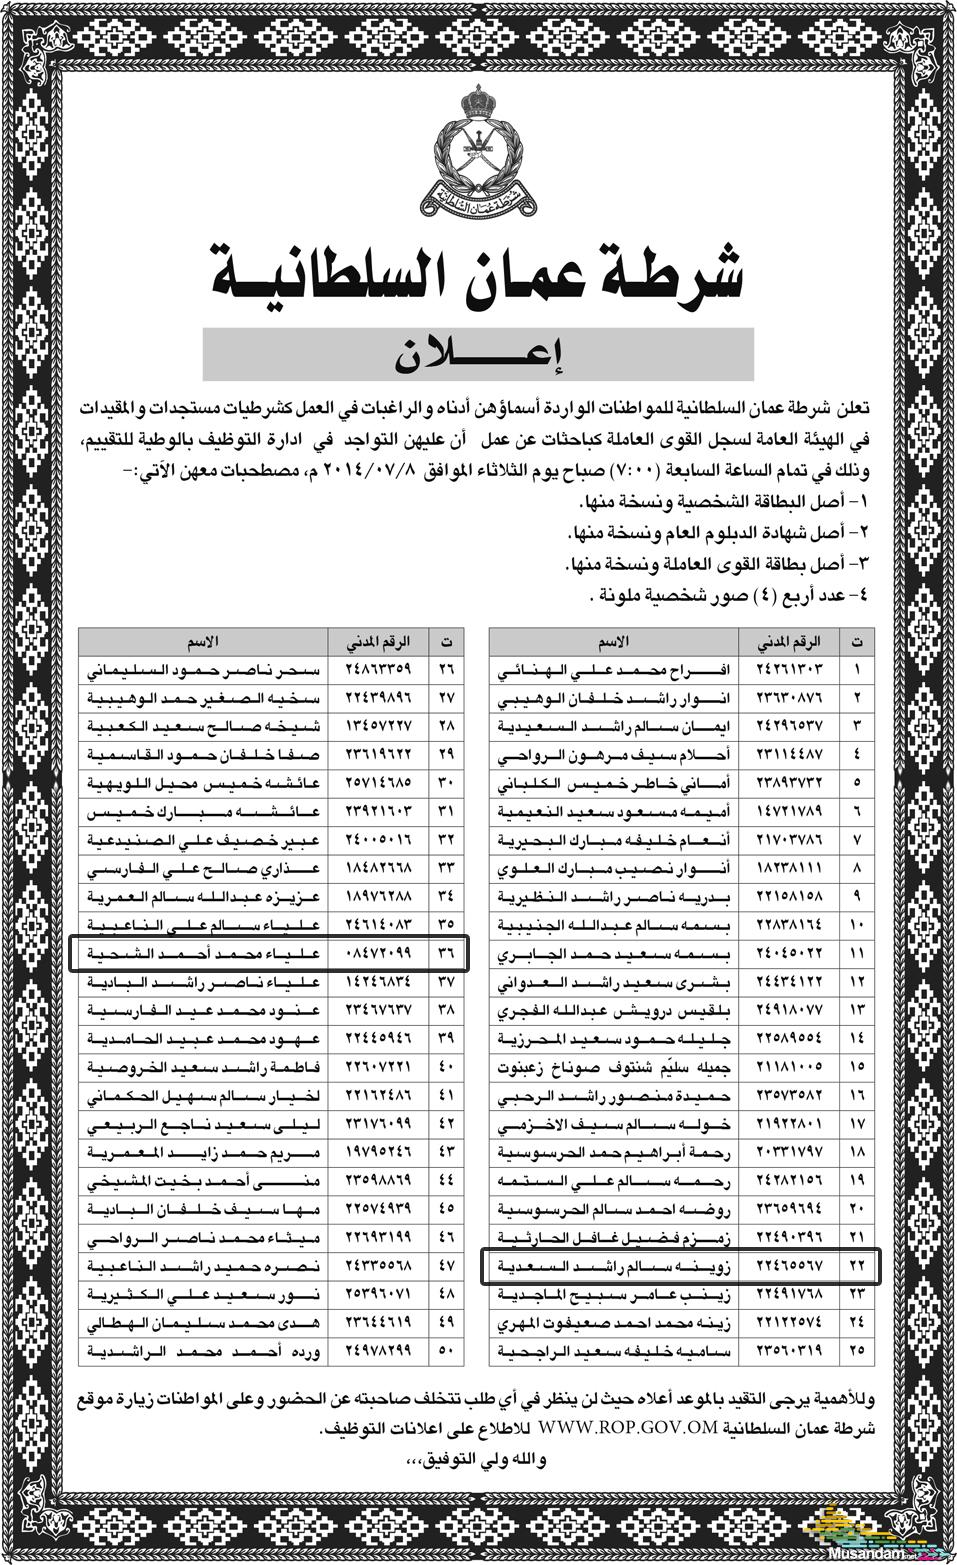 شرطة عمان السلطانية
شرطة عمان السلطانية
إعلان
تعلن شرطة عمان السلطانية للمواطنات الواردة أسماؤهن أدناه والراغبات في العمل كشرطيات مستجدات والمقيدات
في الهيئة العامة لسجل القوى العاملة كباحثات عن عمل أن عليهن التواجد في ادارة التوظيف بالوطية للتقييم،
وذلك في تمام الساعة السابعة (٧:٠٠) صباح يوم الثلاثاء الموافق ٢٠١٤/٠٧/٨ م، مصطحبات معهن الآتي:-
١- أصل البطاقة الشخصية ونسخة منها.
٢- أصل شهادة الدبلوم العام ونسخة منها.
٣- أصل بطاقة القوى العاملة ونسخة منها.
٤- عدد أربع (٤) صور شخصية ملونة .
ت الرقم المدني الاسم
١ ٢٤٢٦١٣٠٣ افراح محمد علي الهنائي
٢ ٢٣٦٣٠٨٧٦ انوار راشد خلفان الوهيبي
٣ ٢٤٢٩٦٥٣٧ ايمان سالم راشد السعيدية
٤ ٢٣١١٤٤٨٧ أحلام سيف مرهون الرواحي
٥ ٢٣٨٩٣٧٣٢ أماني خاطر خميس الكلباني
٦ ١٤٧٢١٧٨٩ أميمه مسعود سعيد النعيمية
٧ ٢١٧٠٣٧٨٦ أنعام خليفه مبارك البحيرية
٨ ١٨٢٣٨١١١ أنوار نصيب مبارك العلوي
٩ ٢٢١٥٨١٥٨ بدريه ناصر راشد النظيرية
١٠ ٢٢٨٣٨١٦٤ بسمه سالم عبدالله الجنيبية
١١ ٢٤٠٤٥٠٢٢ بسمه سعيد حمد الجابري
١٢ ٢٤٤٣٤١٢٢ بشرى سعيد راشد العدواني
١٣ ٢٤٩١٨٠٧٧ بلقيس درويش عبدالله الفجري
١٤ ٢٢٥٨٩٥٥٤ جليله حمود سعيد المحرزية
١٥ ٢١١٨١٠٠٥ جميله سليّم شنتوف صوناخ زعبنوت
١٦ ٢٣٥٧٣٥٨٢ حميدة منصور راشد الرحبي
١٧ ٢١٩٢٢٨٠١ خوله سالم سيف الاخزمي
١٨ ٢٠٣٣١٧٩٧ رحمة أبراهيم حمد الحرسوسية
١٩ ٢٤٢٨٢١٥٦ رحمه سالم علي الستمه
٢٠ ٢٣٦٥٩٦٩٤ روضه احمد سالم الحرسوسية
٢١ ٢٢٤٩٠٣٩٦ زمزم فضيل غافل الحارثية
٢٢ ٢٢٤٦٥٥٦٧ زوينه سالم راشد السعدية
٢٣ ٢٢٤٩١٧٦٨ زينب عامر سبيح الماجدية
٢٤ ٢٢١٢٢٥٧٤ زينه محمد احمد صعيفوت المهري
٢٥ ٢٣٥٦٠٣١٩ ساميه خليفه سعيد الراجحية
ت الرقم المدني الاسم
٢٦ ٢٤٨٦٣٣٥٩ سحر ناصر حمود السليماني
٢٧ ٢٢٤٣٩٨٩٦ سخيه الصغير حمد الوهيبية
٢٨ ١٣٤٥٧٢٢٧ شيخه صالح سعيد الكعبية
٢٩ ٢٣٦١٩٦٢٢ صفا خلفان حمود القاسمية
٣٠ ٢٥٧١٤٦٨٥ عائشه خميس محيل اللويهية
٣١ ٢٣٩٢١٦٠٣ عائشه مبارك خميس
٣٢ ٢٤٠٠٥٠١٦ عبير خصيف علي الصنيدعية
٣٣ ١٨٤٨٢٦٦٨ عذاري صالح علي الفارسي
٣٤ ١٨٩٧٦٢٨٨ عزيزه عبدالله سالم العمرية
٣٥ ٢٤٦١٤٠٨٣ علياء سالم علي الناعبية
٣٦ ٠٨٤٧٢٠٩٩ علياء محمد أحمد الشحية
٣٧ ١٤٢٤٦٨٣٤ علياء ناصر راشد البادية
٣٨ ٢٣٤٦٧٦٣٧ عنود محمد عيد الفارسية
٣٩ ٢٢٤٤٥٩٤٦ عهود محمد عبيد الحامدية
٤٠ ٢٢٦٠٧٢٢١ فاطمة راشد سعيد الخروصية
٤١ ٢٢١٦٢٤٨٦ لخيار سالم سهيل الحكماني
٤٢ ٢٣١٧٦٠٩٩ ليلى سعيد ناجع الربيعي
٤٣ ١٩٧٩٥٢٤٦ مريم حمد زايد المعمرية
٤٤ ٢٣٥٩٨٨٦٩ منى أحمد بخيت المشيخي
٤٥ ٢٢٥٧٤٩٣٩ مها سيف خلفان البادية
٤٦ ٢٢٦٩٣١٩٩ ميثاء محمد ناصر الرواحي
٤٧ ٢٤٣٣٥٥٦٨ نصره حميد راشد الناعبية
٤٨ ٢٥٣٩٦٠٧١ نور سعيد علي الكثيرية
٤٩ ٢٣٦٤٤٦١٩ هدى محمد سليمان الهطالي
٥٠ ٢٤٩٧٨٢٩٩ ورده أحمد محمد الراشدية
وللأهمية يرجى التقيد بالموعد أعلاه حيث لن ينظر في أي طلب تتخلف صاحبته عن الحضور وعلى المواطنات زيارة موقع
شرطة عمان السلطانية WWW.ROP.GOV.OM للاطلاع على اعلانات التوظيف.
والله ولي التوفيق،،،